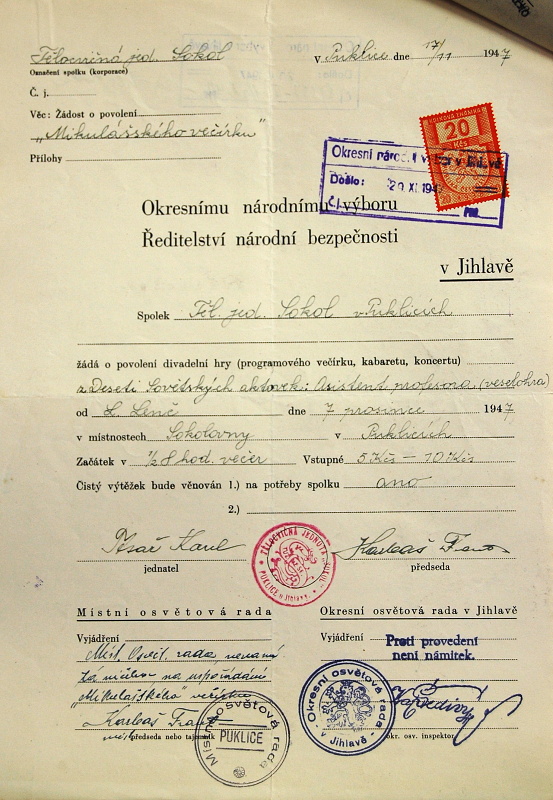 Tělocvičná jed. Sokol
v Puklice dne 17/11 1947
Označení spolku (korporace)
Č. j.
Věc: Žádost o povolení
„Mikulášského večírku"
Přílohy
KOLKOVÁ ZNÁMKA
20
Kčs
Okresní národní výbor v
Došlo: 20 XI. 194
Č.
Okresnímu národnímu výboru
Ředitelství národní bezpečnosti
v Jihlavě
Spolek Těl. jed. Sokol v Puklicích
žádá o povolení divadelní hry (programového večírku, kabaretu, koncertu)
z Deseti Sovětských aktovek: Asistent profesora (veselohra)
od L. Lenč dne 7 prosince 1947
v místnostech Sokolovny v Puklicích
Začátek v ½ 8 hod. večer Vstupné 5 Kčs – 10 Kčs
Čistý výtěžek bude věnován 1.) na potřeby spolku ano
2.)
Karel
jednatel
TĚLOCVIČNÁ JEDNOTA SOKOL
PUKLICE u Jihlavy
předseda
Místní osvětová rada
Vyjádření
Míst. Osvět. rada, nemá
námitek na uspořádání
„Mikulášského" večírku
předseda nebo tajemník
Místní osvětová rada
PUKLICE
Okresní osvětová rada v Jihlavě
Vyjádření
Proti provedení
není námitek.
Okresní osvětová rada
v Jihlavě
okr. osv. inspektor